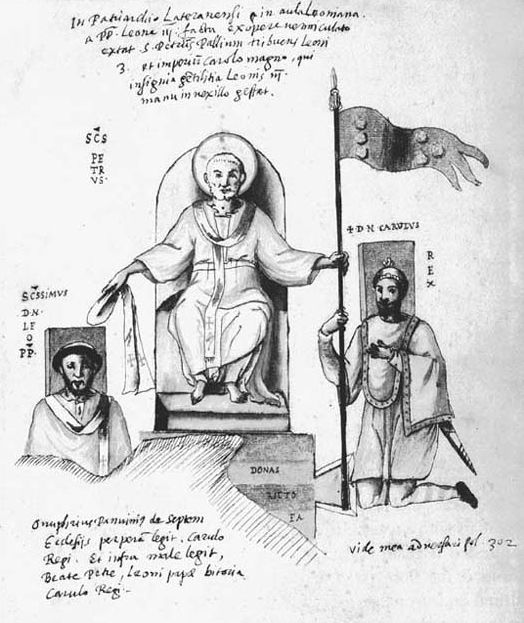 In Patriarchio Lateranensi in aula Leoniana.
a PP. Leone III. facta ex opere vermiculato
extat S. Petrus Pallium tribuens Leoni
3. et imperium Carolo magno, qui
insignia gentilitia Leonis III.
manu in vexillo gestat.
SCS
PE
TR
VS.
+ D N CARVLVS
R
E
X
SCSSIMVS
D. N.
LE
O
PP.
DONAS
BICTO
EA
Onuphrius Panvinius de Septem
Ecclesijs perperā legit, Carulo
Regi. Et infra male legit,
Beate Petre, Leoni papæ bitoria
Carulo Regi.
vide mea adversari fol. 302